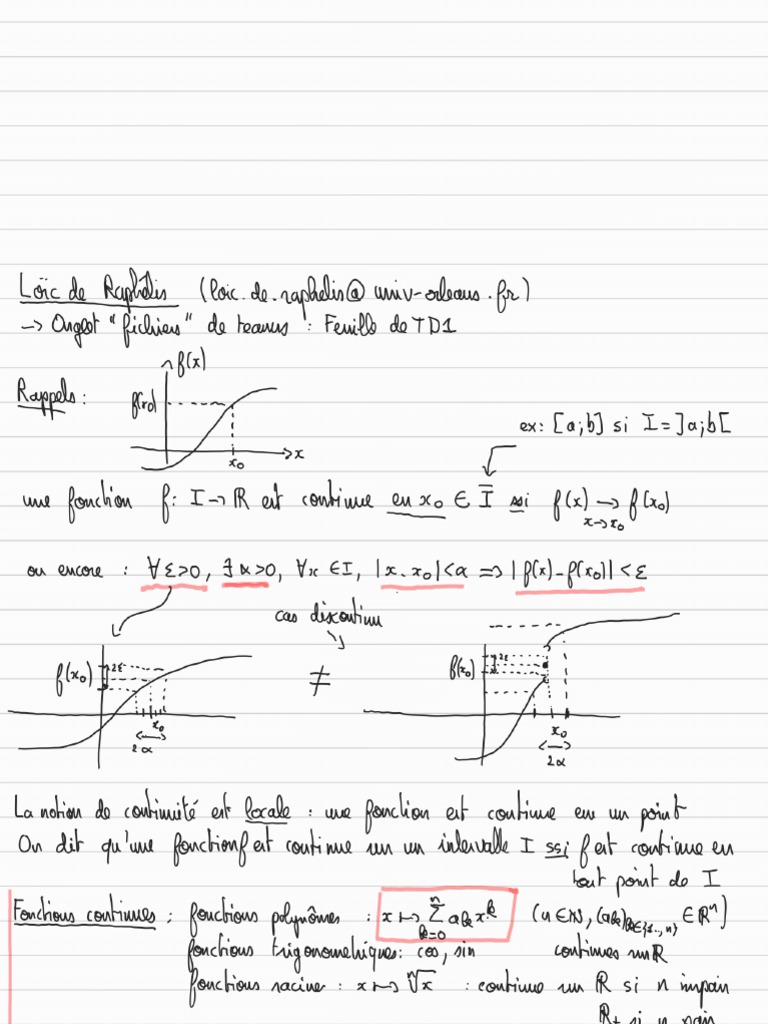 Loïc de Raphélis (loic.de.raphelis@univ-orleans.fr)
-> Onglet "fichiers" de teams : Feuille de TD1
Rappels :
f(x)
f(x0)
x0
x
ex: [a;b] si I=]a;b[
une fonction f: I → ℝ est continue en x0 ∈ Ī ssi f(x) → f(x0)
x→x0
ou encore : ∀ε>0, ∃α>0, ∀x ∈ I, |x-x0|<α ⇒ |f(x)-f(x0)|<ε
cas discontinu
f(x0) 2ε
x0
2α
≠
f(x0) 2ε
x0
2α
La notion de continuité est locale : une fonction est continue en un point
On dit qu'une fonction f est continue sur un intervalle I ssi f est continue en
tout point de I
Fonctions continues : fonctions polynômes : x ↦ Σ_{k=0}^{n} a_k x^k (n∈ℕ, (a_k)_{k∈{1..,n}} ∈ ℝ^n)
fonctions trigonométriques: cos, sin continues sur ℝ
fonctions racine : x ↦ ⁿ√x : continue sur ℝ si n impair
ℝ+ si n pair